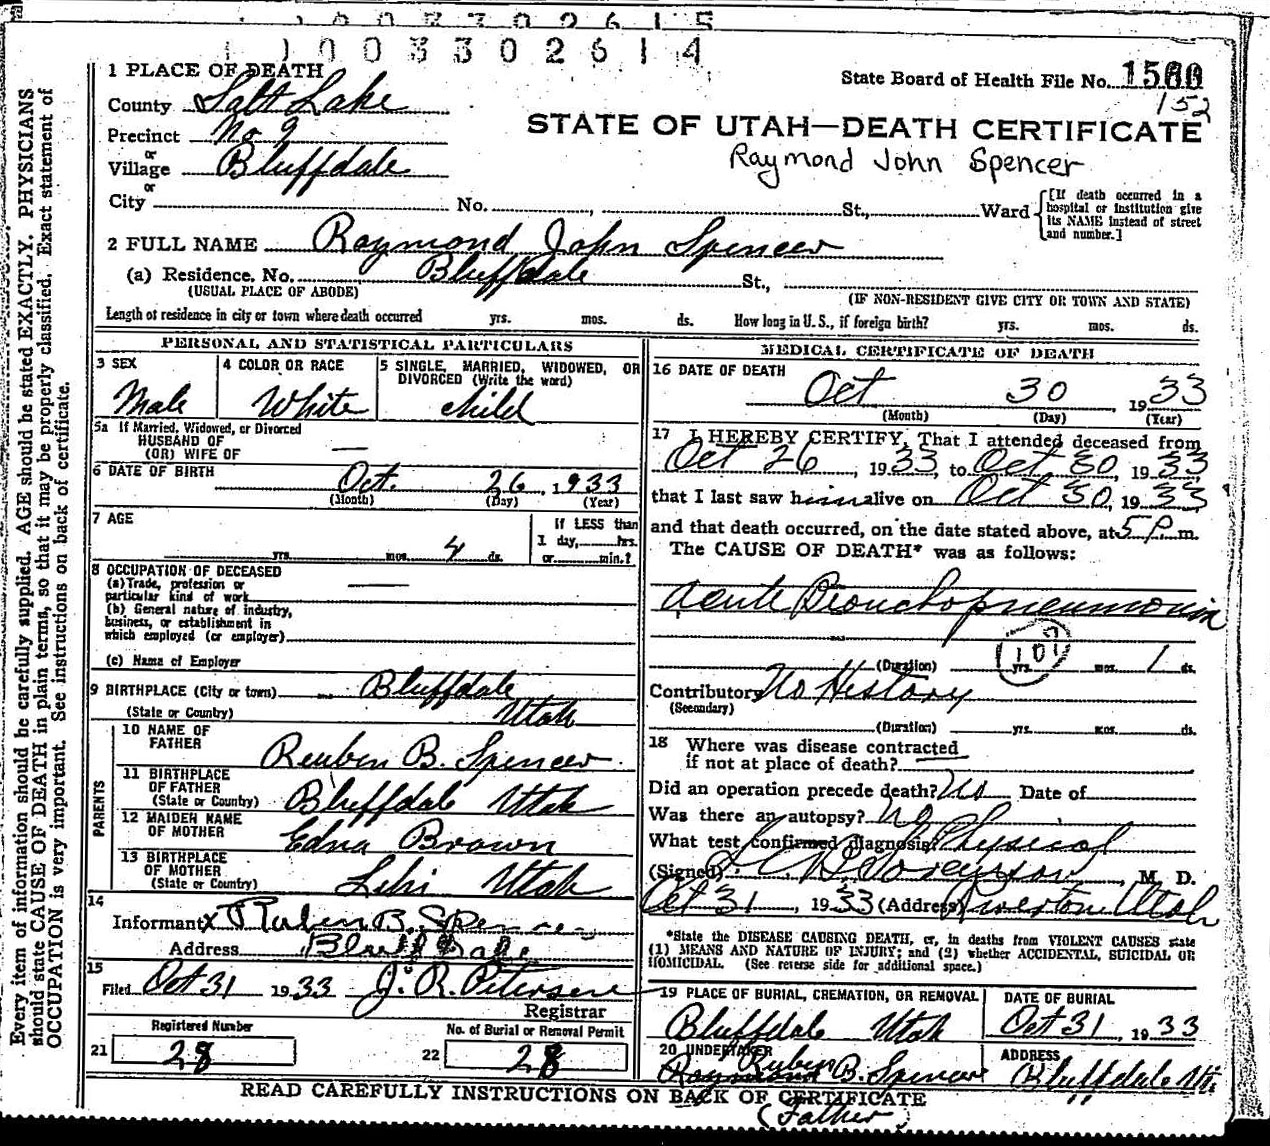 1 0 0 3 3 0 2 6 1 5
1 0 0 3 3 0 2 6 1 4
1 PLACE OF DEATH
State Board of Health File No. 1500
152
County Salt Lake
STATE OF UTAH—DEATH CERTIFICATE
Precinct No 9
Raymond John Spencer
or
Village Bluffdale
or
City No. , St., Ward
[If death occurred in a hospital or institution give its NAME instead of street and number.]
2 FULL NAME Raymond John Spencer
(a) Residence, No. Bluffdale St.,
(USUAL PLACE OF ABODE) (IF NON-RESIDENT GIVE CITY OR TOWN AND STATE)
Length of residence in city or town where death occurred yrs. mos. ds. How long in U. S., if foreign birth? yrs. mos. ds.
PERSONAL AND STATISTICAL PARTICULARS
3 SEX Male
4 COLOR OR RACE White
5 SINGLE, MARRIED, WIDOWED, OR DIVORCED (Write the word) child
5a If Married, Widowed, or Divorced
HUSBAND OF
(OR) WIFE OF —
6 DATE OF BIRTH Oct. 26, 1933
(Month) (Day) (Year)
7 AGE
yrs. mos. 4 ds.
If LESS than
1 day, hrs.
or min.?
8 OCCUPATION OF DECEASED
(a) Trade, profession or
particular kind of work —
(b) General nature of industry,
business, or establishment in
which employed (or employer)
(c) Name of Employer
9 BIRTHPLACE (City or town) Bluffdale
(State or Country) Utah
PARENTS
10 NAME OF
FATHER Reuben B. Spencer
11 BIRTHPLACE
OF FATHER
(State or Country) Bluffdale Utah
12 MAIDEN NAME
OF MOTHER Edna Brown
13 BIRTHPLACE
OF MOTHER
(State or Country) Lehi Utah
14
Informant x Ruben B. Spencer
Address Bluffdale
15
Filed Oct 31 1933 J. R. Petersen
Registrar
Registered Number
21 28
No. of Burial or Removal Permit
22 28
MEDICAL CERTIFICATE OF DEATH
16 DATE OF DEATH
Oct 30, 1933
(Month) (Day) (Year)
17 I HEREBY CERTIFY, That I attended deceased from
Oct 26, 1933 to Oct 30, 1933
that I last saw him alive on Oct 30, 1933
and that death occurred, on the date stated above, at 5 P. m.
The CAUSE OF DEATH* was as follows:
Acute Bronchopneumonia
107
(Duration) yrs. mos. 1 ds.
Contributory No History
(Secondary)
(Duration) yrs. mos. ds.
18 Where was disease contracted
if not at place of death?
Did an operation precede death? No Date of
Was there an autopsy? No
What test confirmed diagnosis? Physical
(Signed) Sorenson, M. D.
Oct 31, 1933 (Address) Riverton Utah
*State the DISEASE CAUSING DEATH, or, in deaths from VIOLENT CAUSES state
(1) MEANS AND NATURE OF INJURY; and (2) whether ACCIDENTAL, SUICIDAL OR
HOMICIDAL. (See reverse side for additional space.)
19 PLACE OF BURIAL, CREMATION, OR REMOVAL
Bluffdale Utah
DATE OF BURIAL
Oct 31, 1933
20 UNDERTAKER
Ruben
Raymond B. Spencer
(Father)
ADDRESS
Bluffdale Ut.
READ CAREFULLY INSTRUCTIONS ON BACK OF CERTIFICATE
Every item of information should be carefully supplied. AGE should be stated EXACTLY. PHYSICIANS
should state CAUSE OF DEATH in plain terms, so that it may be properly classified. Exact statement of
OCCUPATION is very important. See instructions on back of certificate.